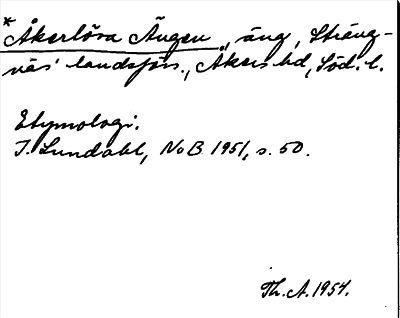 *
Åkerlösa Ängen, äng, Sträng-
näs' landsförs., Åkers hd, Söd. l.
Etymologi.
I. Lundahl, NoB 1951, s. 50.
Th. A. 1954.